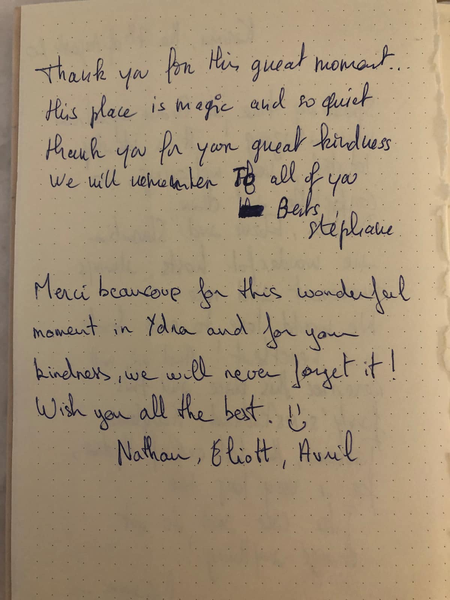 Thank you for this great moment...
this place is magic and so quiet
thank you for your great kindness
We will remember To all of you
Bests
stéphane
Merci beaucoup for this wonderful
moment in Ydra and for your
kindness, we will never forget it!
Wish you all the best. :)
Nathan, Eliott, Avril